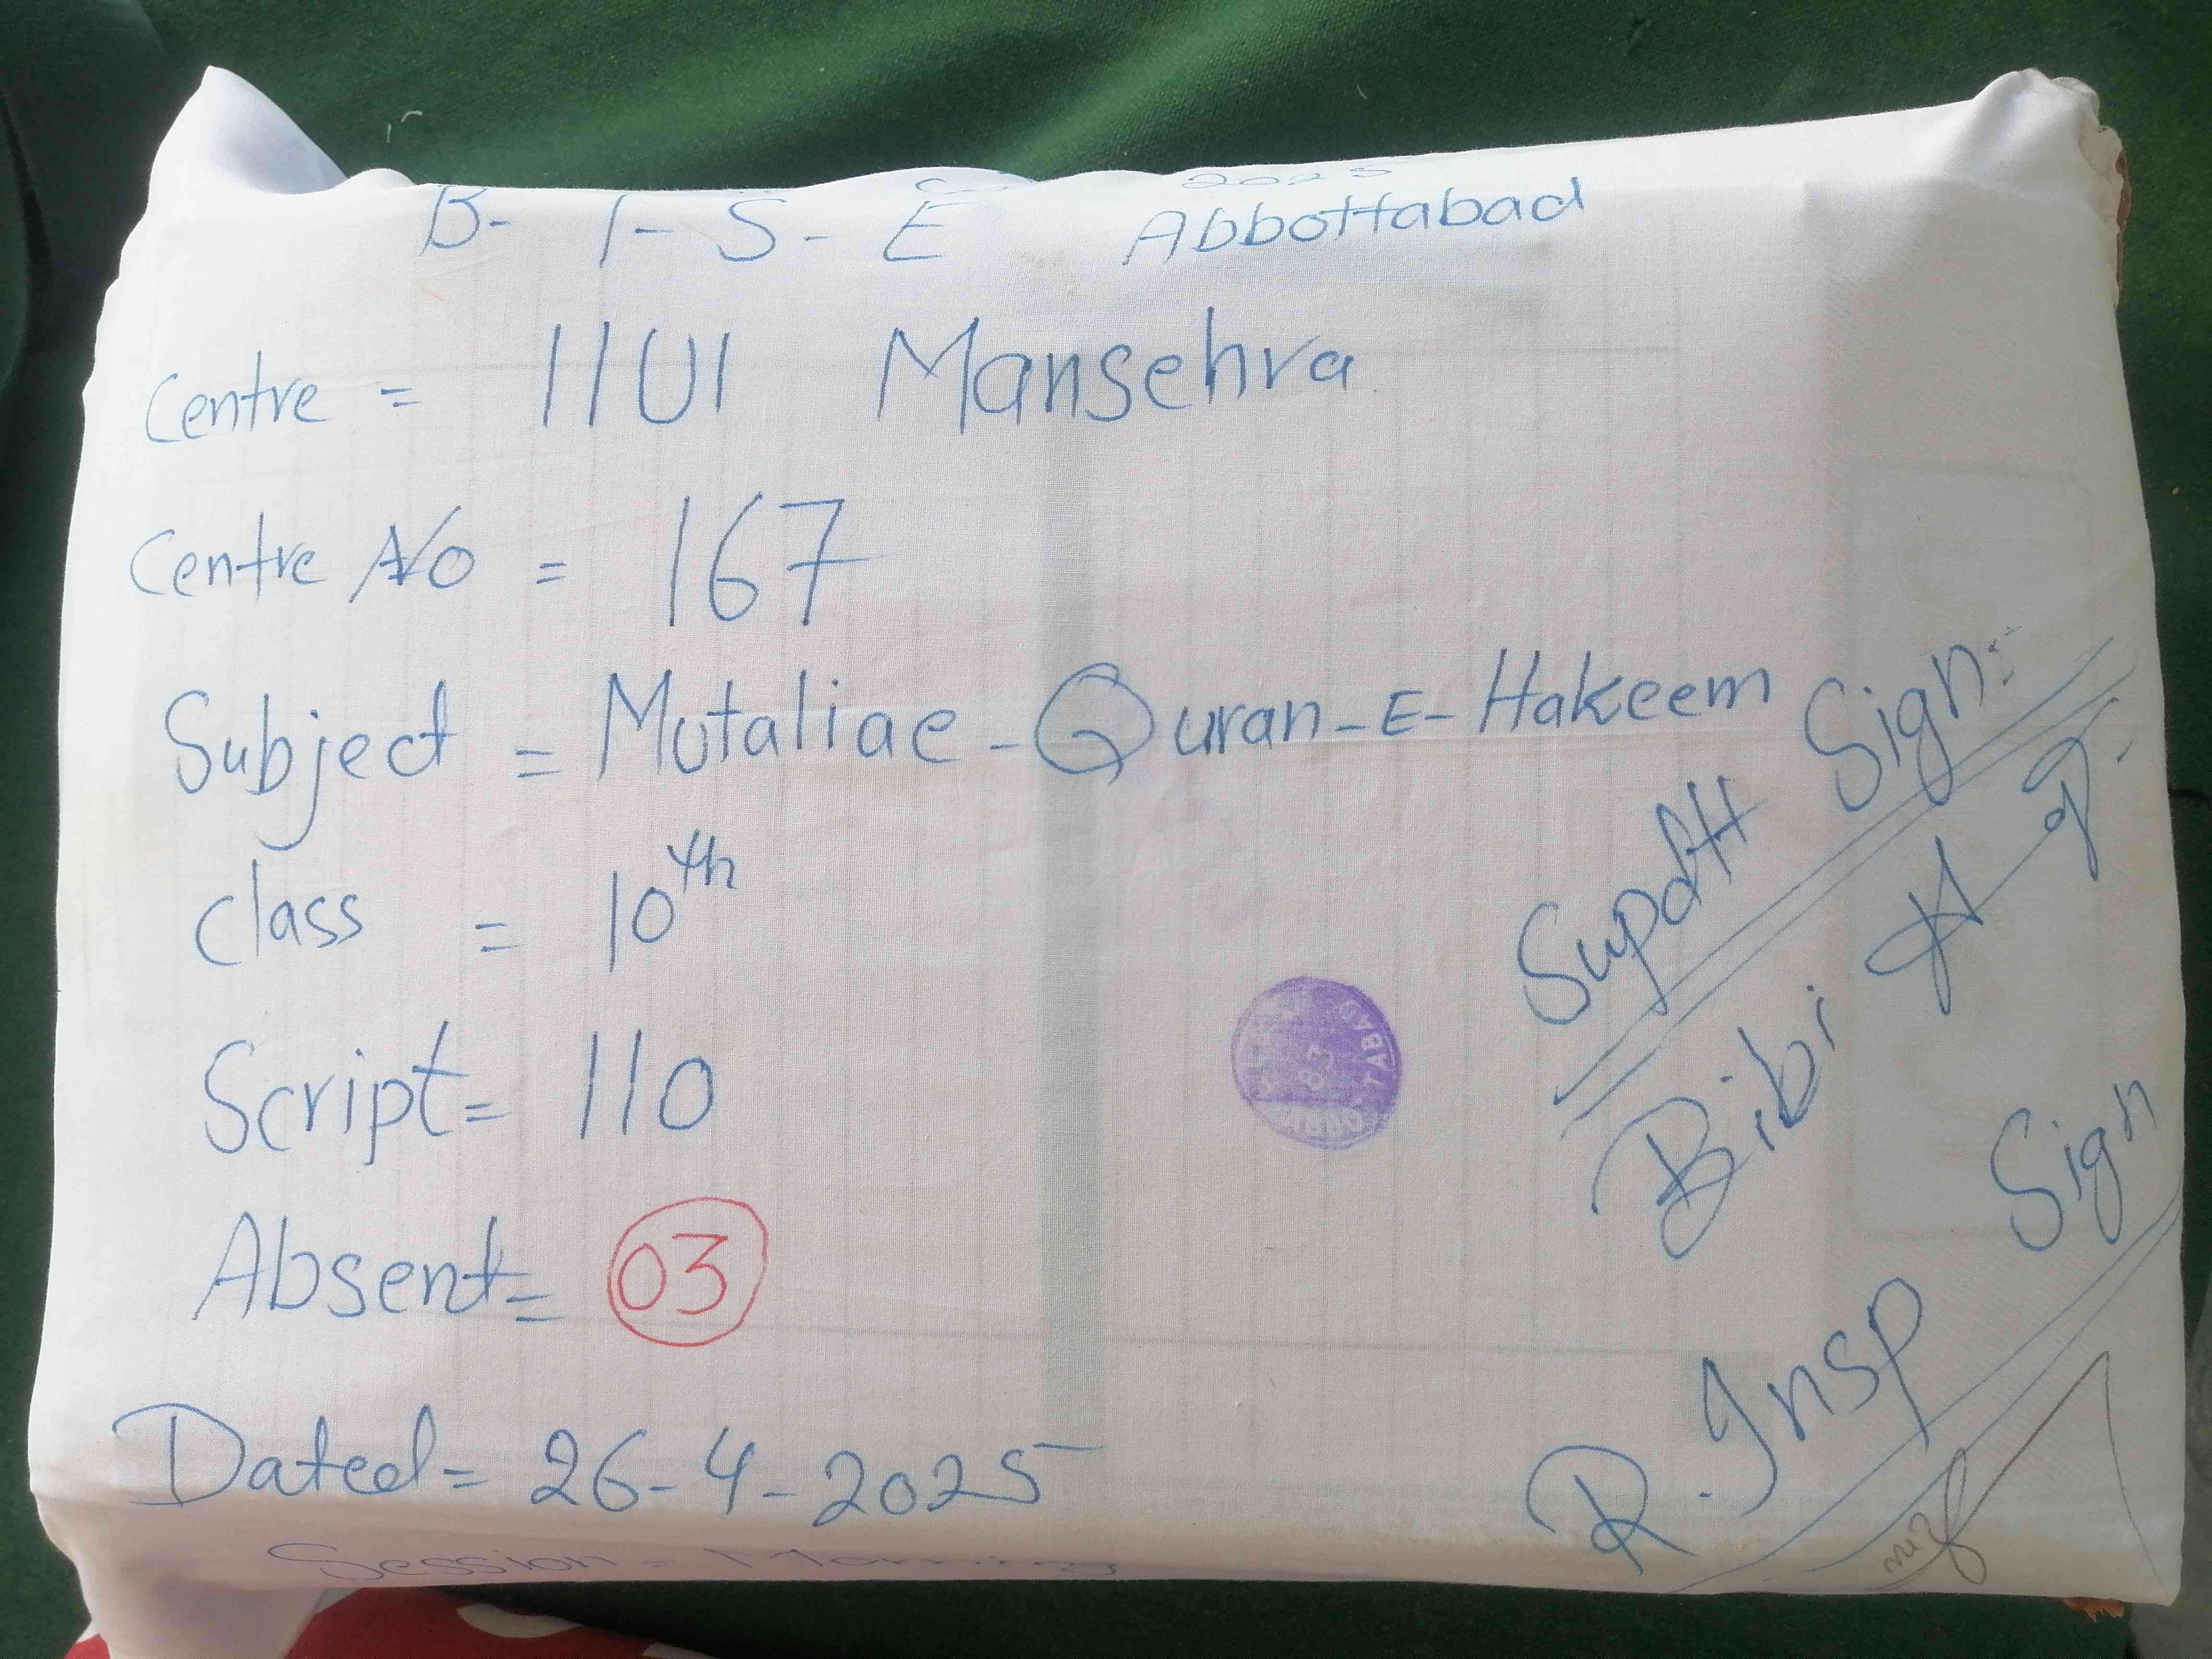 2025
B- I- S- E Abbottabad
Centre = IIUI Mansehra
Centre No = 167
Subject = Mutaliae - Quran - E - Hakeem
Class = 10th
Script = 110
Absent = 03
Dated = 26-4-2025
Session = Morning
Supdtt Sign:
Bibi
R. Insp Sign